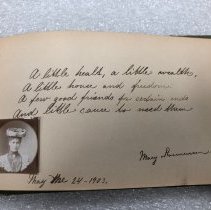 A little health, a little wealth,
A little house and freedom
A few good friends for certain ends
And little cause to need them
Mary
May 24 - 1903.